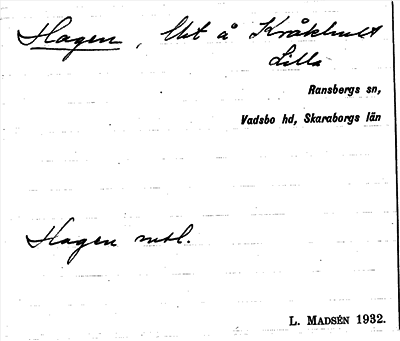 Hagen, Utt å Kråkhult
Lilla
Ransbergs sn,
Vadsbo hd, Skaraborgs län
Hagen mtl.
L. MADSÉN 1932.